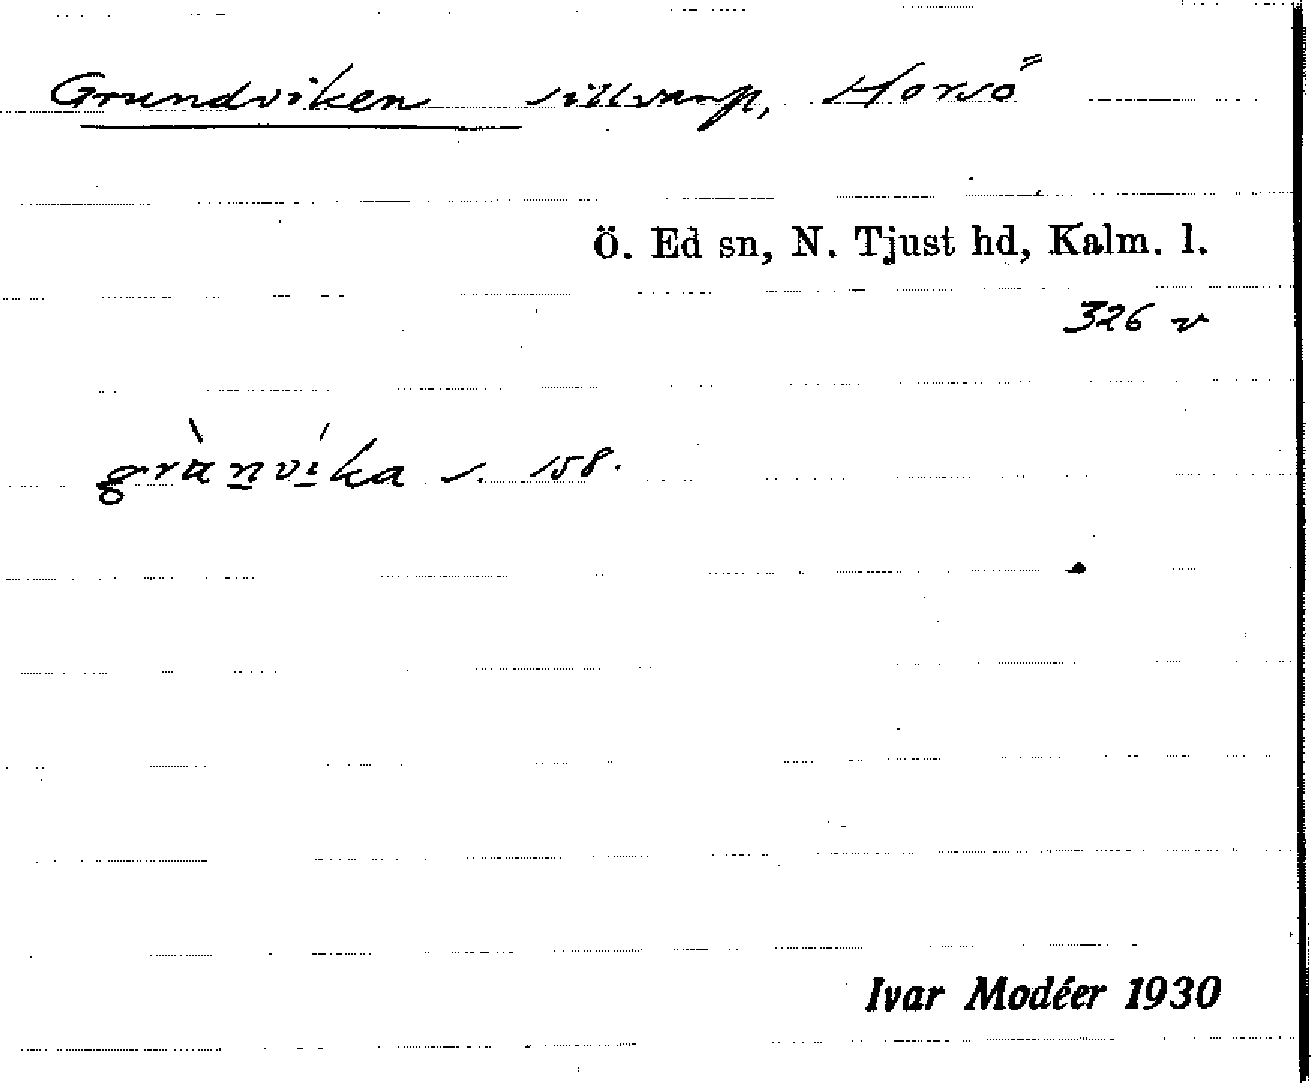 Grundviken sillvarp, Horsö
Ö. Ed sn, N. Tjust hd, Kalm. l.
326 v
grùnvíka s. 158.
Ivar Modéer 1930